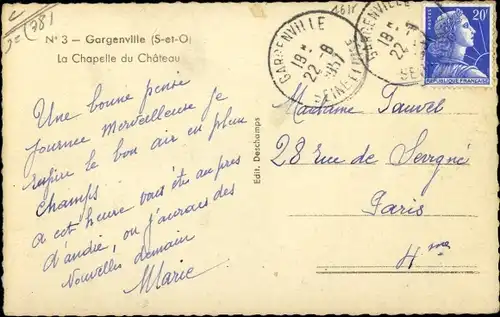 (78)
N° 3 — Gargenville (S-et-O)
La Chapelle du Château
GARGENVILLE
18 H
22 - 8
1957
SEINE ET OISE
GARGENVILLE
18 H
22 - 8
POSTES
20F
REPUBLIQUE FRANÇAISE
Une bonne pensée
journée merveilleuse je
respire le bon air en plein
champs.
a cet heure vous êtes auprès
d'andré, ou j'aurais des
Nouvelles demain
Marie
Edit. Deschamps
Madame Fauvel
28 Rue de Sevigné
Paris
4me